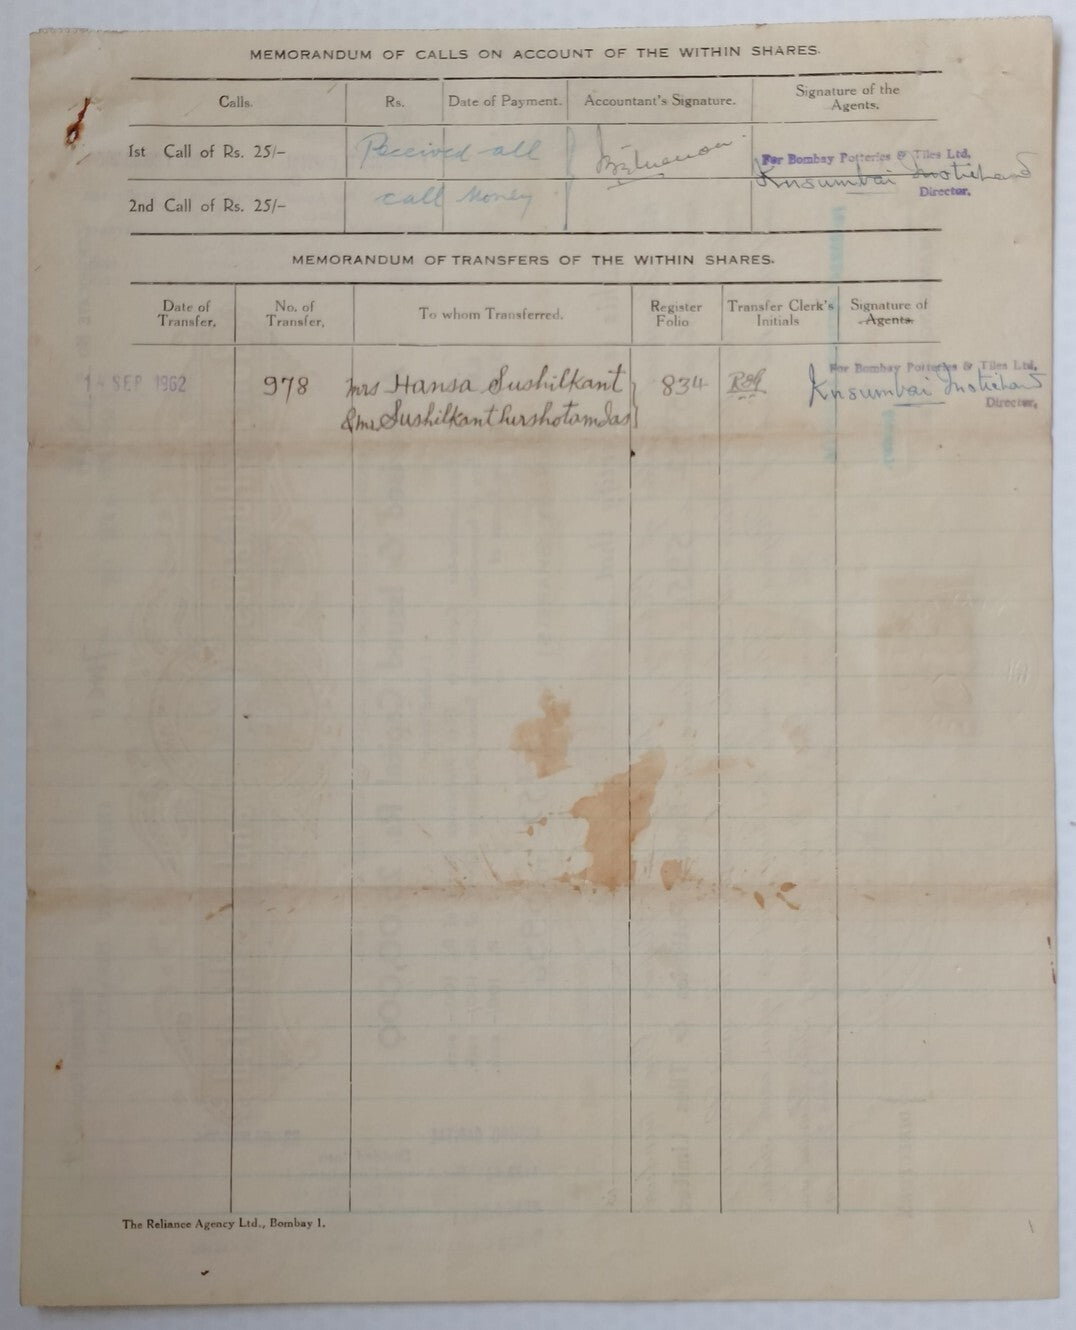 MEMORANDUM OF CALLS ON ACCOUNT OF THE WITHIN SHARES.
Calls. Rs. Date of Payment. Accountant's Signature. Signature of the Agents.
1st Call of Rs. 25/- Received all
For Bombay Potteries & Tiles Ltd,
Director,
2nd Call of Rs. 25/- call Money
MEMORANDUM OF TRANSFERS OF THE WITHIN SHARES.
Date of Transfer. No. of Transfer. To whom Transferred. Register Folio Transfer Clerk's Initials Signature of Agents.
For Bombay Potteries & Tiles Ltd,
SEP 1962 978 Mrs Hansa Sushilkant 834
Director,
& Mr Sushilkant
The Reliance Agency Ltd., Bombay 1.